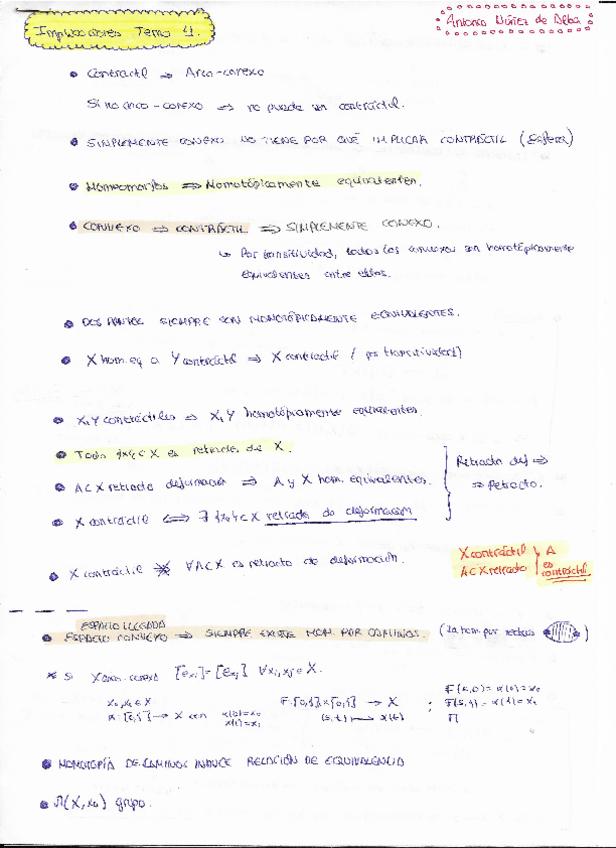 Implicaciones Tema 1.
Antonio Núñez de Alba
• Contráctil ⇒ Arco-conexo
Si no arco-conexo ⇒ no puede ser contráctil.
• SIMPLEMENTE CONEXO NO TIENE POR QUÉ IMPLICAR CONTRÁCTIL (Esfera)
• Homeomorfos ⇒ Homotópicamente equivalentes.
• CONVEXO ⇒ CONTRÁCTIL ⇒ SIMPLEMENTE CONEXO.
↳ Por transitividad, todos los convexos son homotópicamente
equivalentes entre ellos.
• DOS PUNTOS SIEMPRE SON HOMOTÓPICAMENTE EQUIVALENTES.
• X hom. eq a Y contráctil ⇒ X contráctil (por transitividad)
• X, Y contráctiles ⇒ X, Y homotópicamente equivalentes.
• Todo {x₀} ⊂ X es retracto de X.
• A ⊂ X retracto deformación ⇒ A y X hom. equivalentes.
Retracto def ⇒
⇒ Retracto.
• X contráctil ⇔ ∃ {x₀} ⊂ X retracto de deformación
• X contráctil ⇏ ∀A ⊂ X es retracto de deformación.
X contráctil } A
A ⊂ X retracto } es contráctil
ESPACIO LLEGADA
• ESPACIO CONVEXO ⇒ SIEMPRE EXISTE HOM. POR CAMINOS. (La hom. por rectas)
* Si X arco. conexo [e_{xi}] = [e_{xj}] ∀xi, xj ∈ X.
x₀, x₁ ∈ X
α: [0,1] → X con α(0)=x₀
α(1)=x₁
F: [0,1]×[0,1] → X
(s,t) ↦ α(t)
; F(s,0) = α(0) = x₀
F(s,1) = α(1) = x₁
• HOMOTOPÍA DE CAMINOS INDUCE RELACIÓN DE EQUIVALENCIA
• Π(X, x₀) grupo.